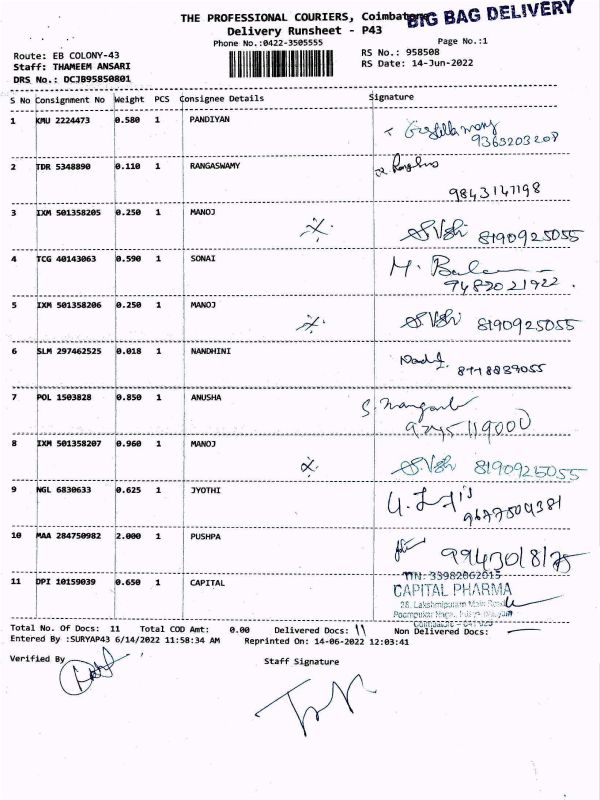 THE PROFESSIONAL COURIERS, Coimbatore
BIG BAG DELIVERY
Delivery Runsheet - P43
Phone No.:0422-3505555
Page No.:1
Route: EB COLONY-43
RS No.: 958508
Staff: THAMEEM ANSARI
RS Date: 14-Jun-2022
DRS No.: DCJB95850801
S No Consignment No Weight PCS Consignee Details Signature
1 KMU 2224473 0.580 1 PANDIYAN
9363203208
2 TDR 5348890 0.110 1 RANGASWAMY
9843147198
3 IXM 501358205 0.250 1 MANOJ
8190925055
4 TCG 40143063 0.590 1 SONAI
5 IXM 501358206 0.250 1 MANOJ
8190925055
6 SLM 297462525 0.018 1 NANDHINI
7 POL 1503828 0.850 1 ANUSHA
8 IXM 501358207 0.960 1 MANOJ
8190925055
9 NGL 6830633 0.625 1 JYOTHI
10 MAA 284750982 2.000 1 PUSHPA
11 DPI 10159039 0.650 1 CAPITAL
TIN: 33982062015
CAPITAL PHARMA
28, Lakshmipuram Main Road
Total No. Of Docs: 11 Total COD Amt: 0.00 Delivered Docs: 11 Non Delivered Docs: —
Entered By :SURYAP43 6/14/2022 11:58:34 AM Reprinted On: 14-06-2022 12:03:41
Verified By
Staff Signature